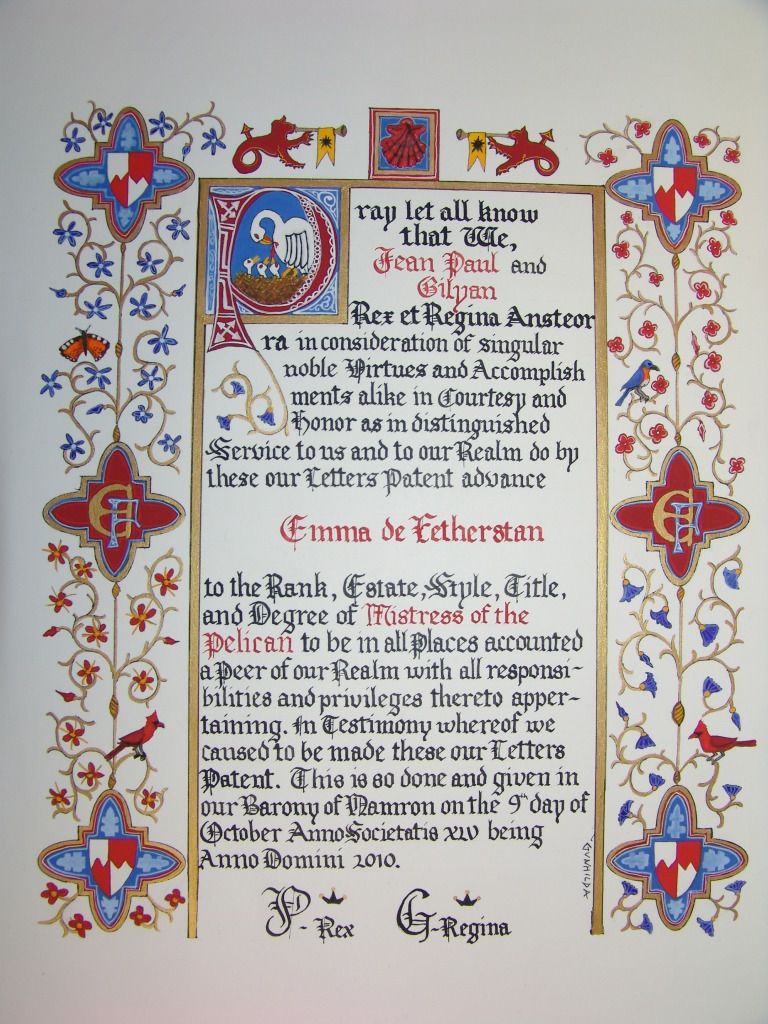 Pray let all know
that We,
Jean Paul and
Gilyan
Rex et Regina Ansteor
ra in consideration of singular
noble Virtues and Accomplish
ments alike in Courtesy and
Honor as in distinguished
Service to us and to our Realm do by
these our Letters Patent advance
Emma de Fetherstan
to the Rank, Estate, Style, Title,
and Degree of Mistress of the
Pelican to be in all Places accounted
a Peer of our Realm with all responsi-
bilities and privileges thereto apper-
taining. In Testimony whereof we
caused to be made these our Letters
Patent. This is so done and given in
our Barony of Namron on the 9th day of
October Anno Societatis XLV being
Anno Domini 2010.
P- Rex G-Regina
GUNHILDA